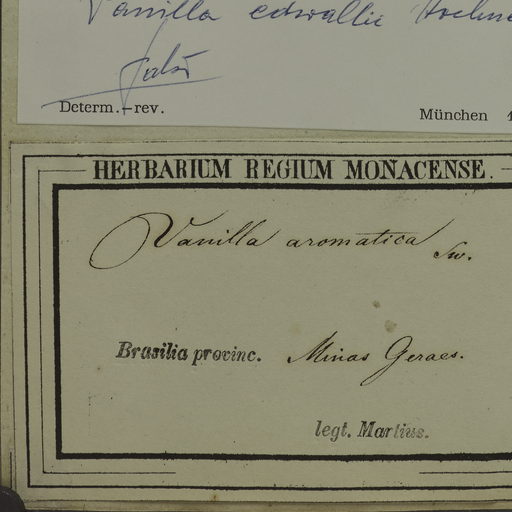 Vanilla edwallii Hoehne
Determ.—rev.
München 1
HERBARIUM REGIUM MONACENSE.
Vanilla aromatica Sw.
Brasilia provinc. Minas Geraes.
legt. Martius.